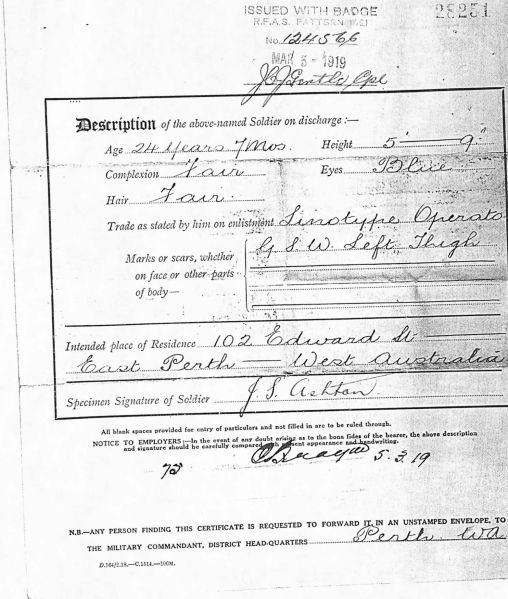 ISSUED WITH BADGE 28251
R.F.A.S. PATTERN 1921
No. 124566
MAR 5 - 1919
Cpl
Description of the above-named Soldier on discharge :—
Age 24 Years 7 Mos. Height 5' — 9"
Complexion Fair Eyes Blue
Hair Fair.
Trade as stated by him on enlistment Linotype Operato
Marks or scars, whether on face or other parts of body— G S W Left Thigh
Intended place of Residence 102 Edward St
East Perth West Australia
Specimen Signature of Soldier J. S. Ashton.
All blank spaces provided for entry of particulars and not filled in are to be ruled through.
NOTICE TO EMPLOYERS :—In the event of any doubt arising as to the bona fides of the bearer, the above description
and signature should be carefully compared with present appearance and handwriting.
5.3.19
N.B.—ANY PERSON FINDING THIS CERTIFICATE IS REQUESTED TO FORWARD IT, IN AN UNSTAMPED ENVELOPE, TO
THE MILITARY COMMANDANT, DISTRICT HEAD-QUARTERS Perth WA
D.564/2.18.—C.1514.—100M.